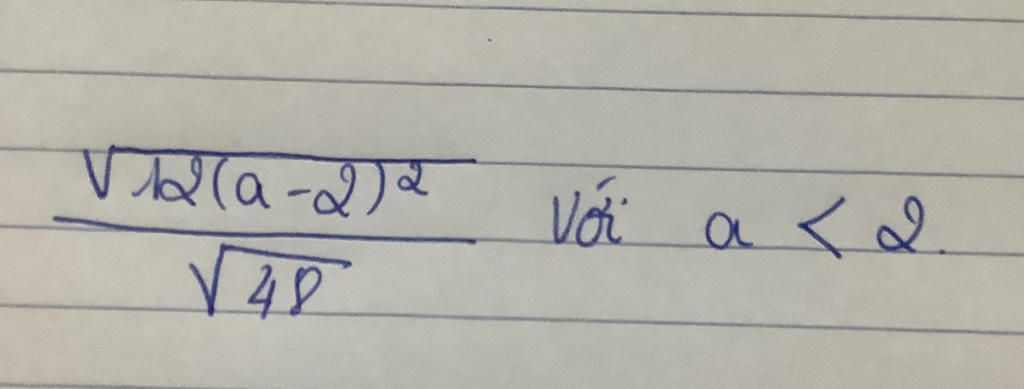 √12(a-2)² / √48 Với a < 2.